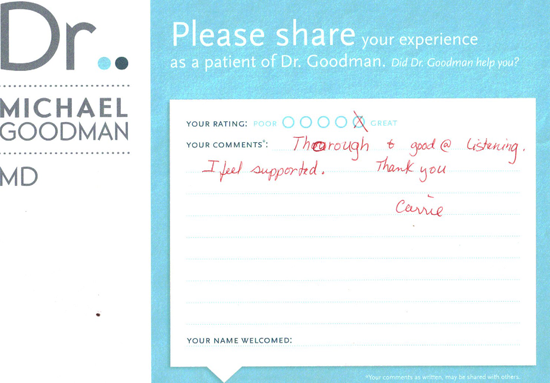 Dr..
MICHAEL
GOODMAN
MD
Please share your experience
as a patient of Dr. Goodman. Did Dr. Goodman help you?
YOUR RATING: POOR GREAT
YOUR COMMENTS*: Thorough & good @ listening.
I feel supported. Thank you
Carrie
YOUR NAME WELCOMED:
*Your comments as written, may be shared with others.